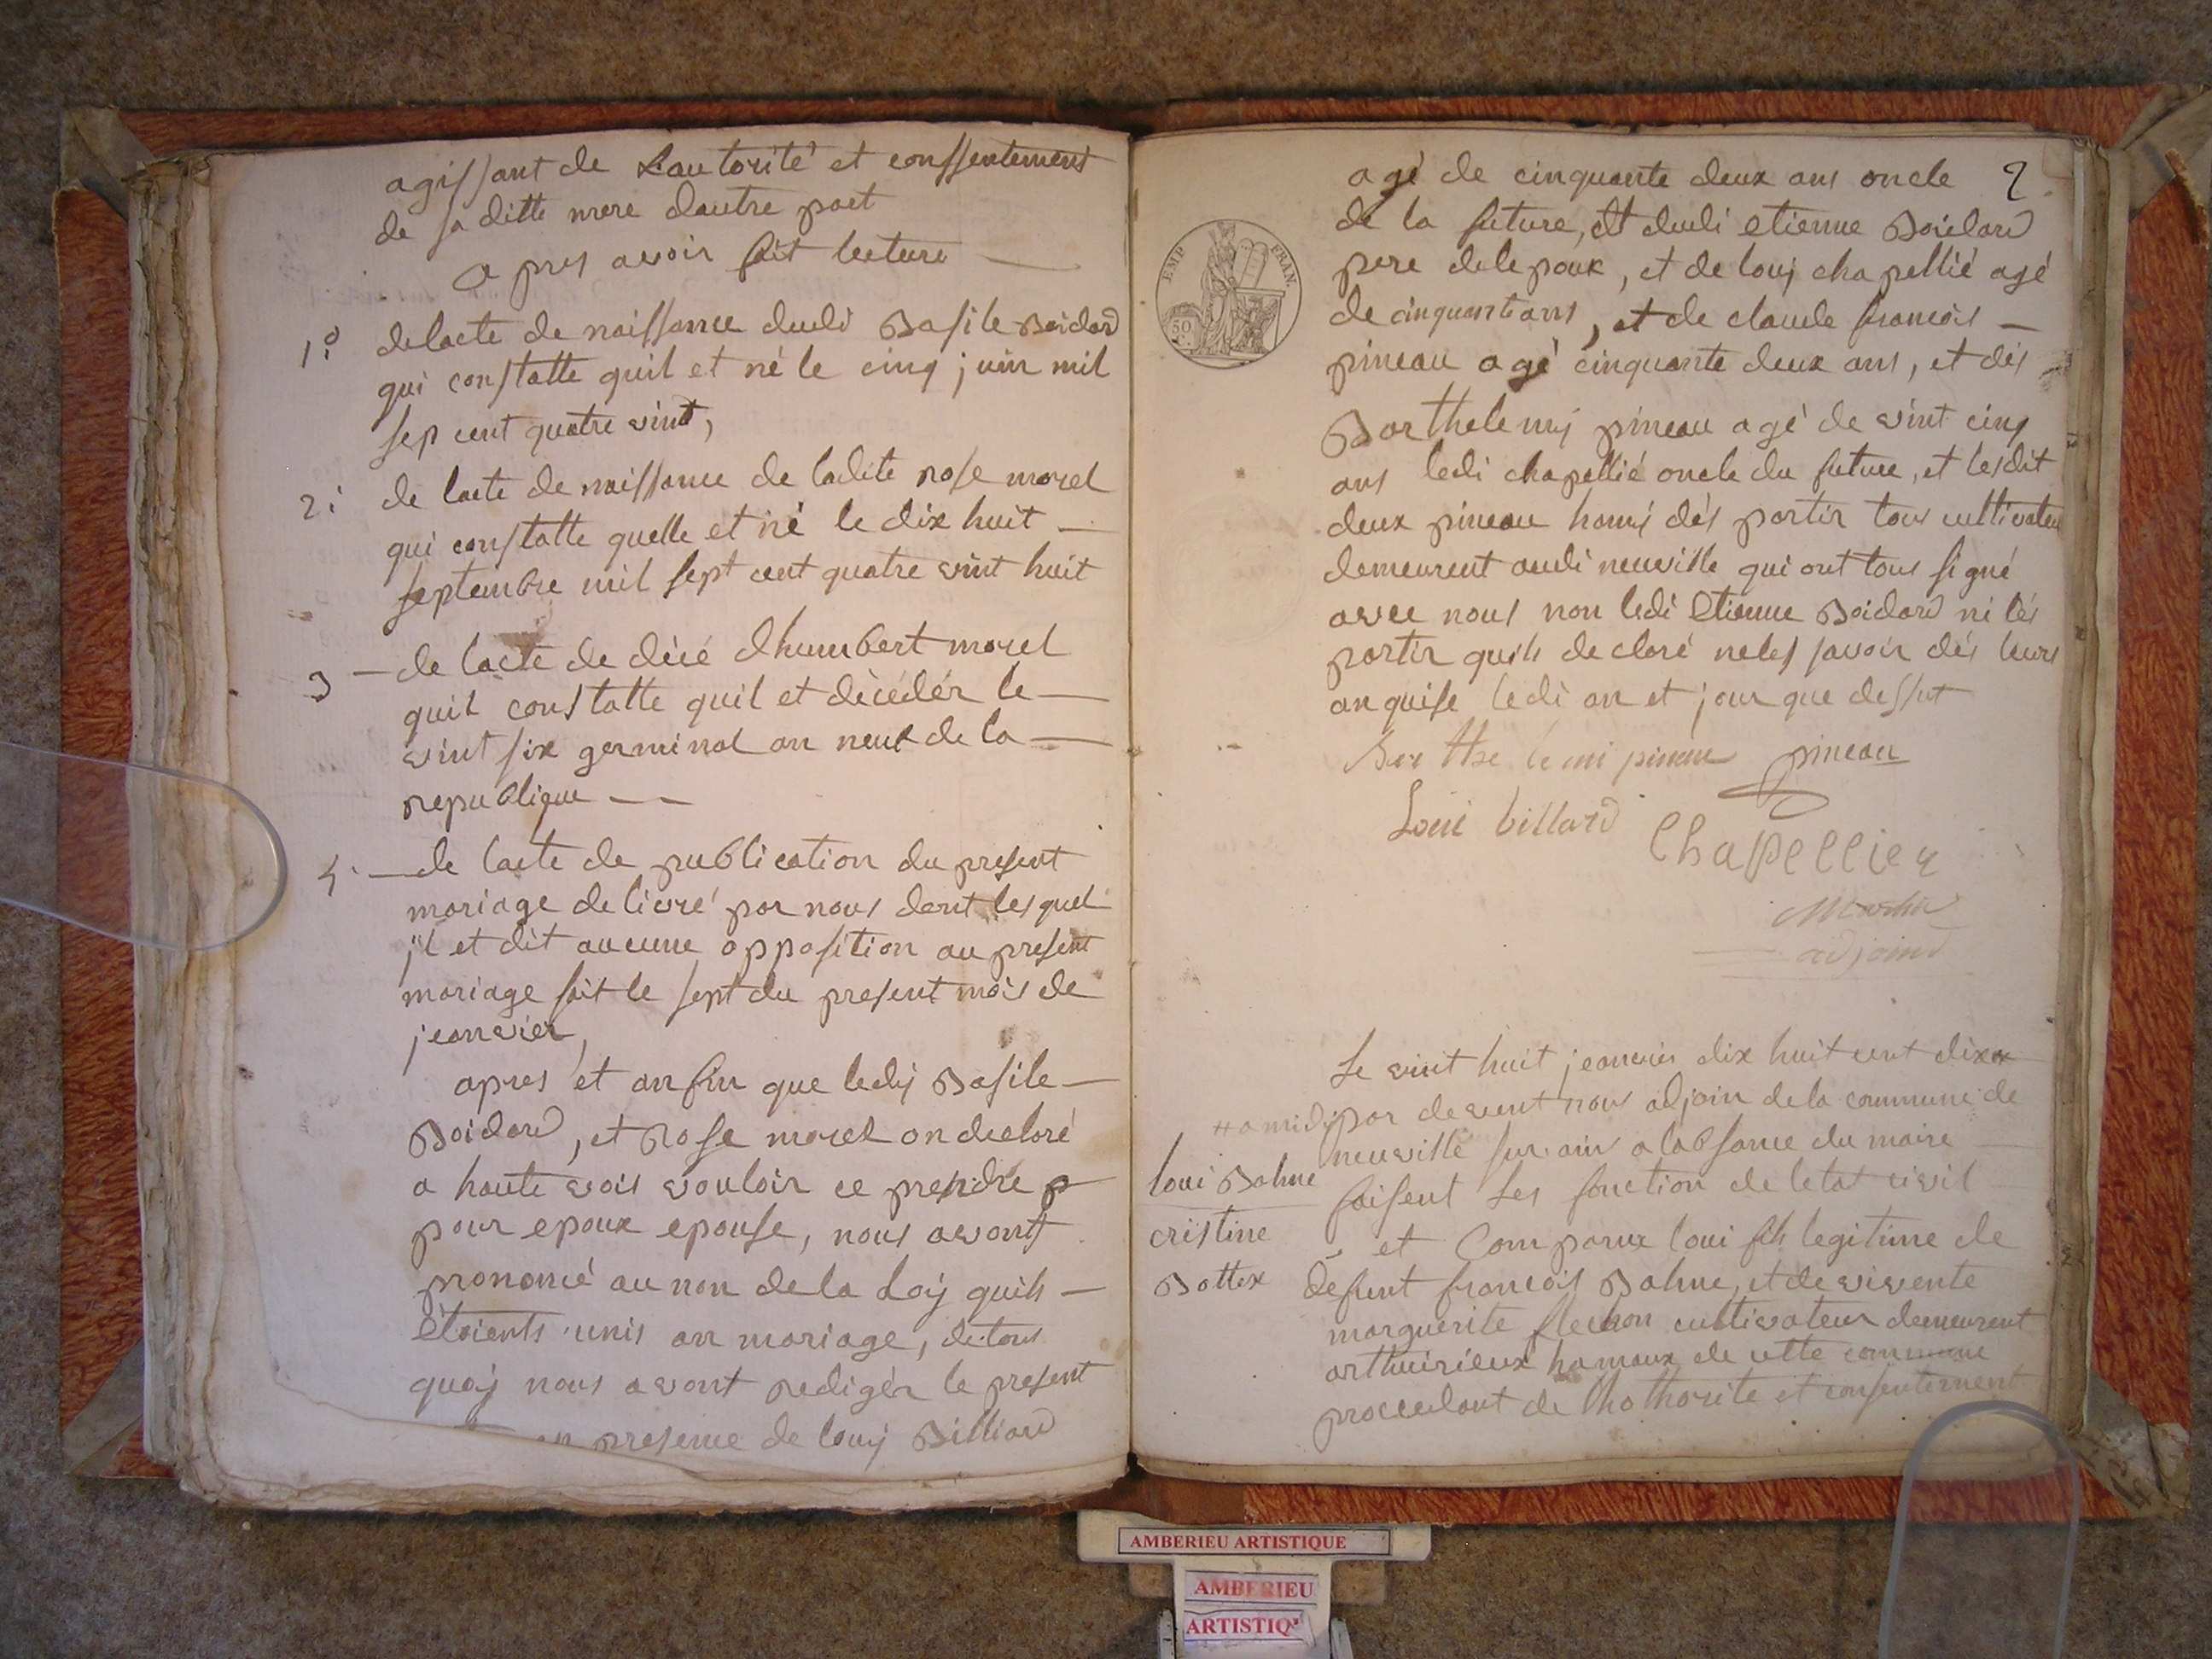 agissant de Lautorité et conssentement
de sa ditte mere dautre part
apres avoir fait lecture
1o delacte de naissance dudi Basile Boidard
qui constatte quil et né le cinq juin mil
sept cent quatre vint,
2o de lacte de naissance de ladite rose morel
qui constatte quelle et né le dix huit —
septembre mil sept cent quatre vint huit
3 — de lacte de décé dhumbert morel
quil constatte quil et décédér le —
vint six germinal an neuf de la —
republique —
4. — de lacte de publication du present
mariage de livré par nous dant lesquel
jil et dit aucune opposition au present
mariage fait le sept du present mois de
jeanvier,
apres et anfin que ledij Basile —
Boidard, et Rose morel on declaré
a haute vois vouloir ce prendre p
pour epoux epouse, nous avont
prononcé au non de la Loij quils —
étoients unis an mariage, de tous
quoij nous avont redigér le present
an presence de louij Billiard
agé de cinquante deux ans oncle 2
de la future, et dudi etienne Boidard
EMP. FRAN.
50 C.
pere delepoux, et de louij chapellié agé
de cinquante ans, et de claude francois —
pineau agé cinquante deux ans, et dés
Barthelemij pineau agé de vint cinq
ans ledi chapellié oncle du future, et lesdit
deux pineau hamij dés partir tous cultivateu
demeurent audi neuville qui ont tous signé
avec nous non ledi Etienne Boidard ni lés
partir quils declaré neles savoir dés leurs
anquise ledi an et jour que dessut
Barthelemi pineau pineau
Loui billard Chapellier
Martin
adjoind
Le vint huit jeanvier dix huit cent dix
a midi par devent nous adjoin de la commune de
neuville sur ain a labsance du maire
loui Bahne faisent les fonction de letat civil
cristine et Comparux loui fils legitime de
Bottex defunt francois Bahne, et de vivente
marguerite flechon cultivateur demeurent
arthuirieux hamaux de cette commune
proceedant de lhothorite et consentement
AMBERIEU ARTISTIQUE
AMBERIEU
ARTISTIQ